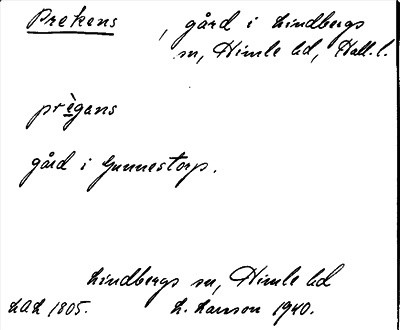 Prekens, gård i Lindbergs
sn, Himle hd, Hall. l.
prègans
gård i Gunnestorp.
Lindbergs sn, Himle hd
LAL 1805. L. Larsson 1940.